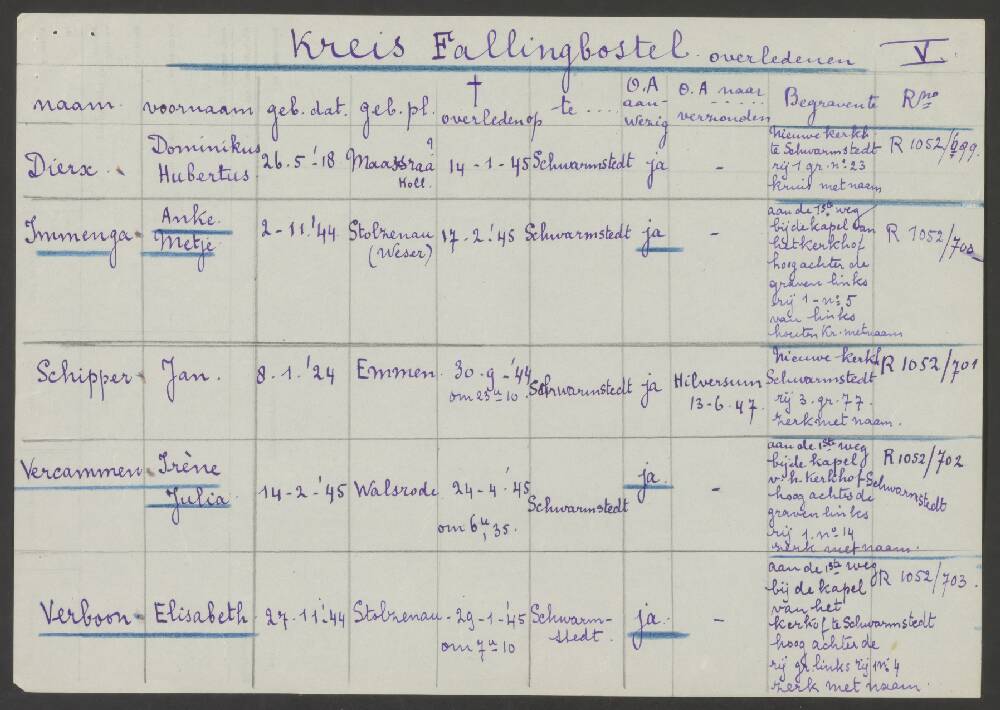 Kreis Fallingbostel overledenen V.
naam. voornaam geb. dat. geb. pl. † overleden op te .... O.A aan-wezig O.A naar ...... verzonden Begraven te R no
Dierx. Dominikus Hubertus. 26.5.'18 Holl. 14-1-'45 Schwarmstedt ja - Nieuwe kerkh. te Schwarmstedt rij 1 gr. no. 23 kruis met naam R 1052/699.
Immenga Anke Metje 2-11.'44 Stolzenau (Weser) 17.2.'45 Schwarmstedt ja - aan de 1ste weg bij de kapel van het kerkhof hoog achter de graven links rij 1-no. 5 van links houten Kr. met naam R 1052/700
Schipper. Jan. 8.1.'24 Emmen. 30-9-'44 om 25u 10. Schwarmstedt ja Hilversum 13-6.47. Nieuwe kerkh. Schwarmstedt rij 3. gr. 77. zerk met naam. R 1052/701
Vercammen. Irène Julia. 14-2-'45 Walsrode 24-4-'45 om 6u,35. Schwarmstedt ja. - aan de 1ste weg bij de kapel v.h. Kerkhof Schwarmstedt hoog achter de graven links rij 1. no. 14 zerk met naam. R 1052/702
Verboon. Elisabeth. 27-11.'44 Stolzenau 29-1-'45 om 7u 10 Schwarm-stedt. ja. - aan de 1ste weg bij de kapel van het kerkhof te Schwarmstedt hoog achter de rij gr links rij 1 no. 4 zerk met naam. R 1052/703.